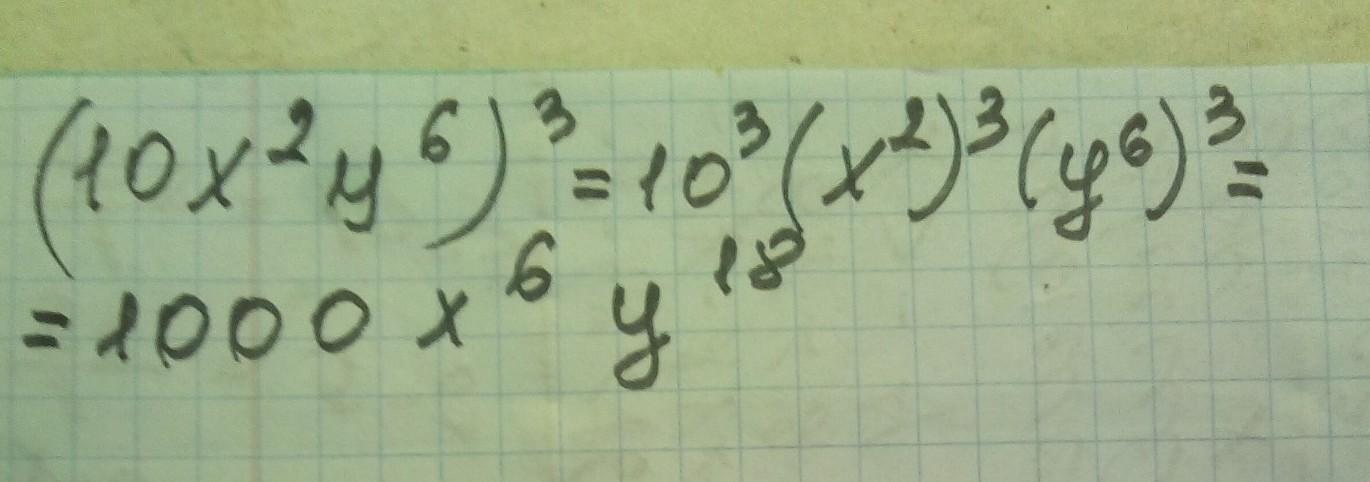 (10x²y⁶)³=10³(x²)³(y⁶)³=
=1000x⁶y¹⁸